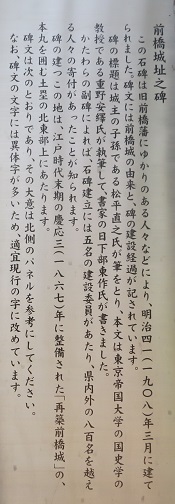 前橋城址之碑
この石碑は旧前橋藩にゆかりのある人々などにより、明治四一(一九〇八)年三月に建て
られました。碑文には前橋城の由来と、碑の建設経過が記されています。
碑の標題は城主の子孫である松平直之氏が筆をとり、本文は東京帝国大学の国史学の
教授である重野安繹氏が執筆して、書家の日下部東作氏が書きました。
かたわらの副碑によれば、石碑建立には五名の建設委員があたり、県内外の八百名を越え
る人々の寄付があったことが知られます。
碑の建つこの地は、江戸時代末期の慶応三(一八六七)年に整備された「再築前橋城」の、
本丸を囲む土塁の北東部にあたります。
碑文は次のとおりであり、その大意は北側のパネルを参考としてください。
なお、碑文の文字には異体字が多いため、適宜現行の字に改めています。